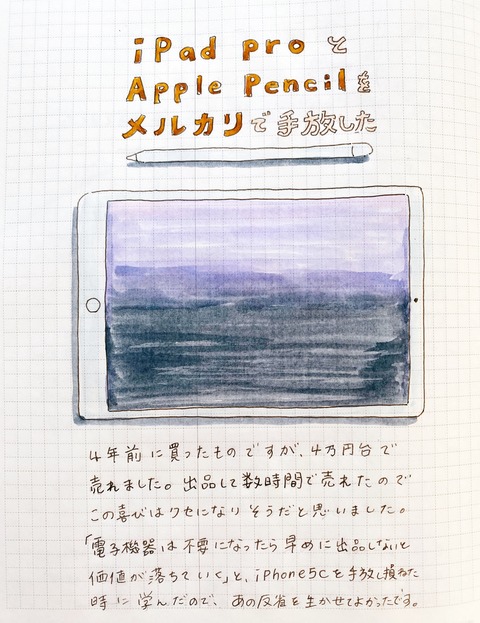 iPad pro と
Apple Pencil を
メルカリで手放した
4年前に買ったものですが、4万円台で
売れました。出品して数時間で売れたので
この喜びはクセになりそうだと思いました。
「電子機器は不要になったら早めに出品しないと
価値が落ちていく」と、iPhone5Cを手放し損ねた
時に学んだので、あの反省を生かせてよかったです。